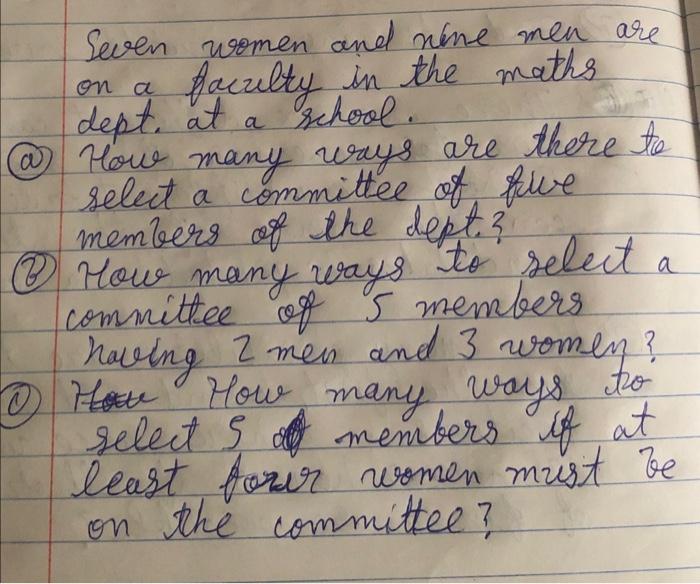 Seven women and nine men are
on a faculty in the maths
dept. at a school.
(a) How many ways are there to
select a committee of five
members of the dept.?
(b) How many ways to select a
committee of 5 members
having 2 men and 3 women?
(c) How How many ways to
select 5 members if at
least four women must be
on the committee?